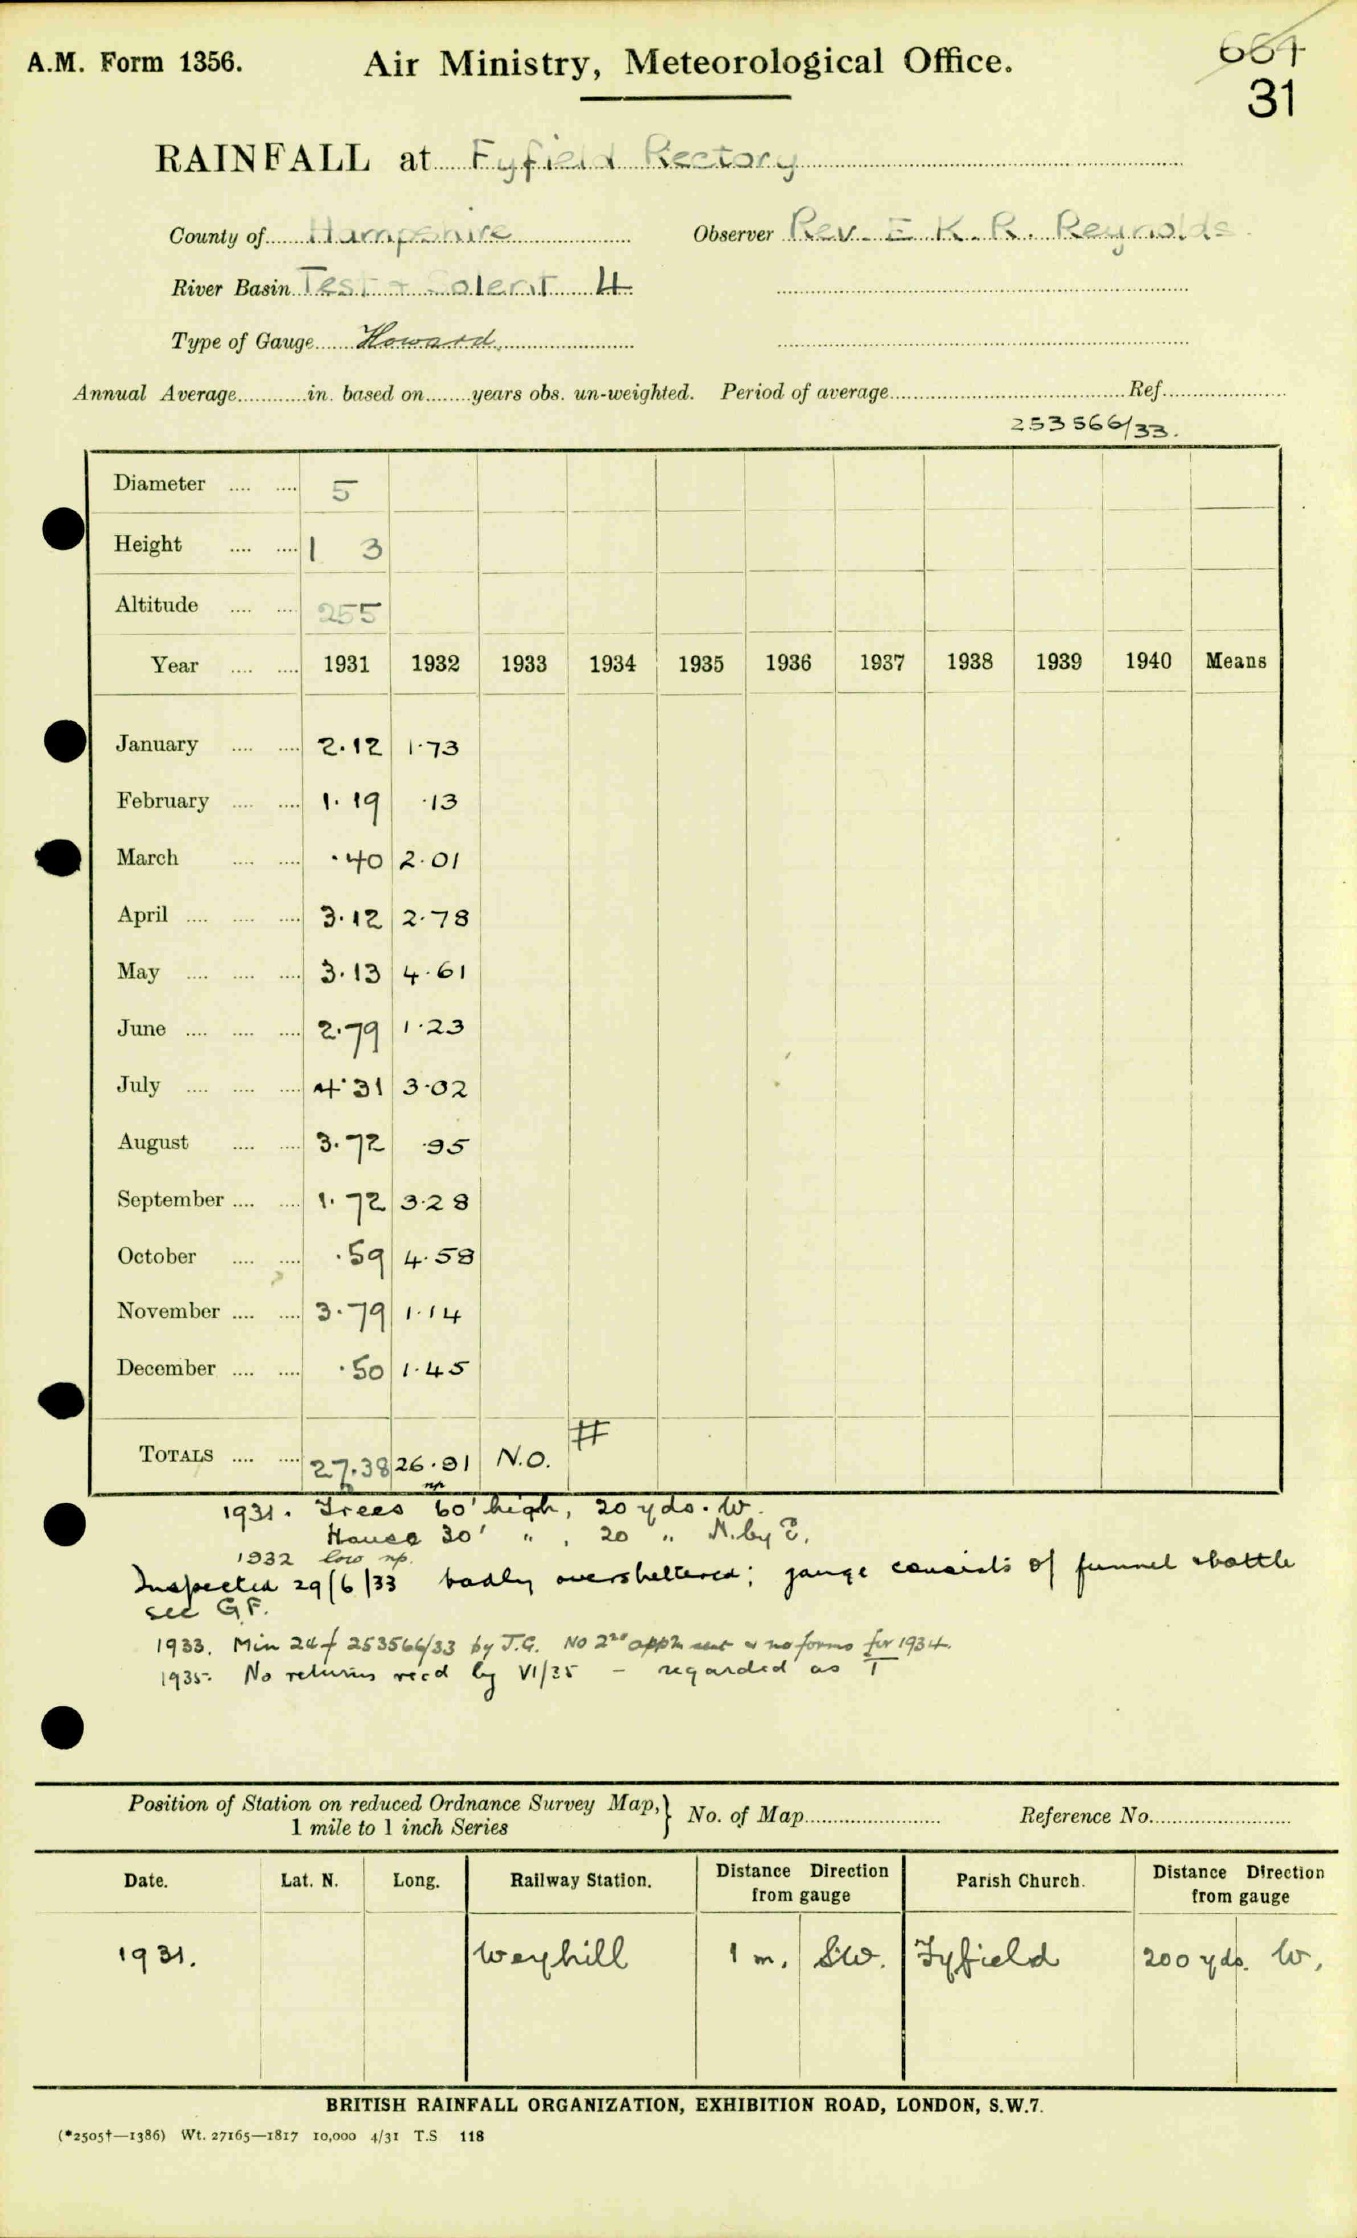 A.M. Form 1356. Air Ministry, Meteorological Office. 664
31
RAINFALL at Fyfield Rectory
County of Hampshire Observer Rev. E. K. R. Reynolds
River Basin Test + Solent 4
Type of Gauge Howard
Annual Average in. based on years obs. un-weighted. Period of average Ref.
253566/33.
Diameter 5
Height 1 3
Altitude 255
Year 1931 1932 1933 1934 1935 1936 1937 1938 1939 1940 Means
January 2.12 1.73
February 1.19 .13
March .40 2.01
April 3.12 2.78
May 3.13 4.61
June 2.79 1.23
July 4.31 3.02
August 3.72 .95
September 1.72 3.28
October .59 4.58
November 3.79 1.14
December .50 1.45
TOTALS 27.38 26.91 N.O. #
np
1931. Trees 60' high, 20 yds. W.
House 30' " , 20 " N. by E.
1932 low np.
Inspected 29/6/33 badly oversheltered; gauge consists of funnel & bottle
see G.F.
1933. Min 24 of 253566/33 by J.G. No 2nd appn sent & no forms for 1934.
1935. No returns rec'd by VI/35 – regarded as T
Position of Station on reduced Ordnance Survey Map, } No. of Map Reference No.
1 mile to 1 inch Series
Date. Lat. N. Long. Railway Station. Distance Direction from gauge Parish Church. Distance Direction from gauge
1931. Weyhill 1 m. S.W. Fyfield 200 yds. W.
BRITISH RAINFALL ORGANIZATION, EXHIBITION ROAD, LONDON, S.W.7.
(*2505†—1386) Wt. 27165—1817 10,000 4/31 T.S 118